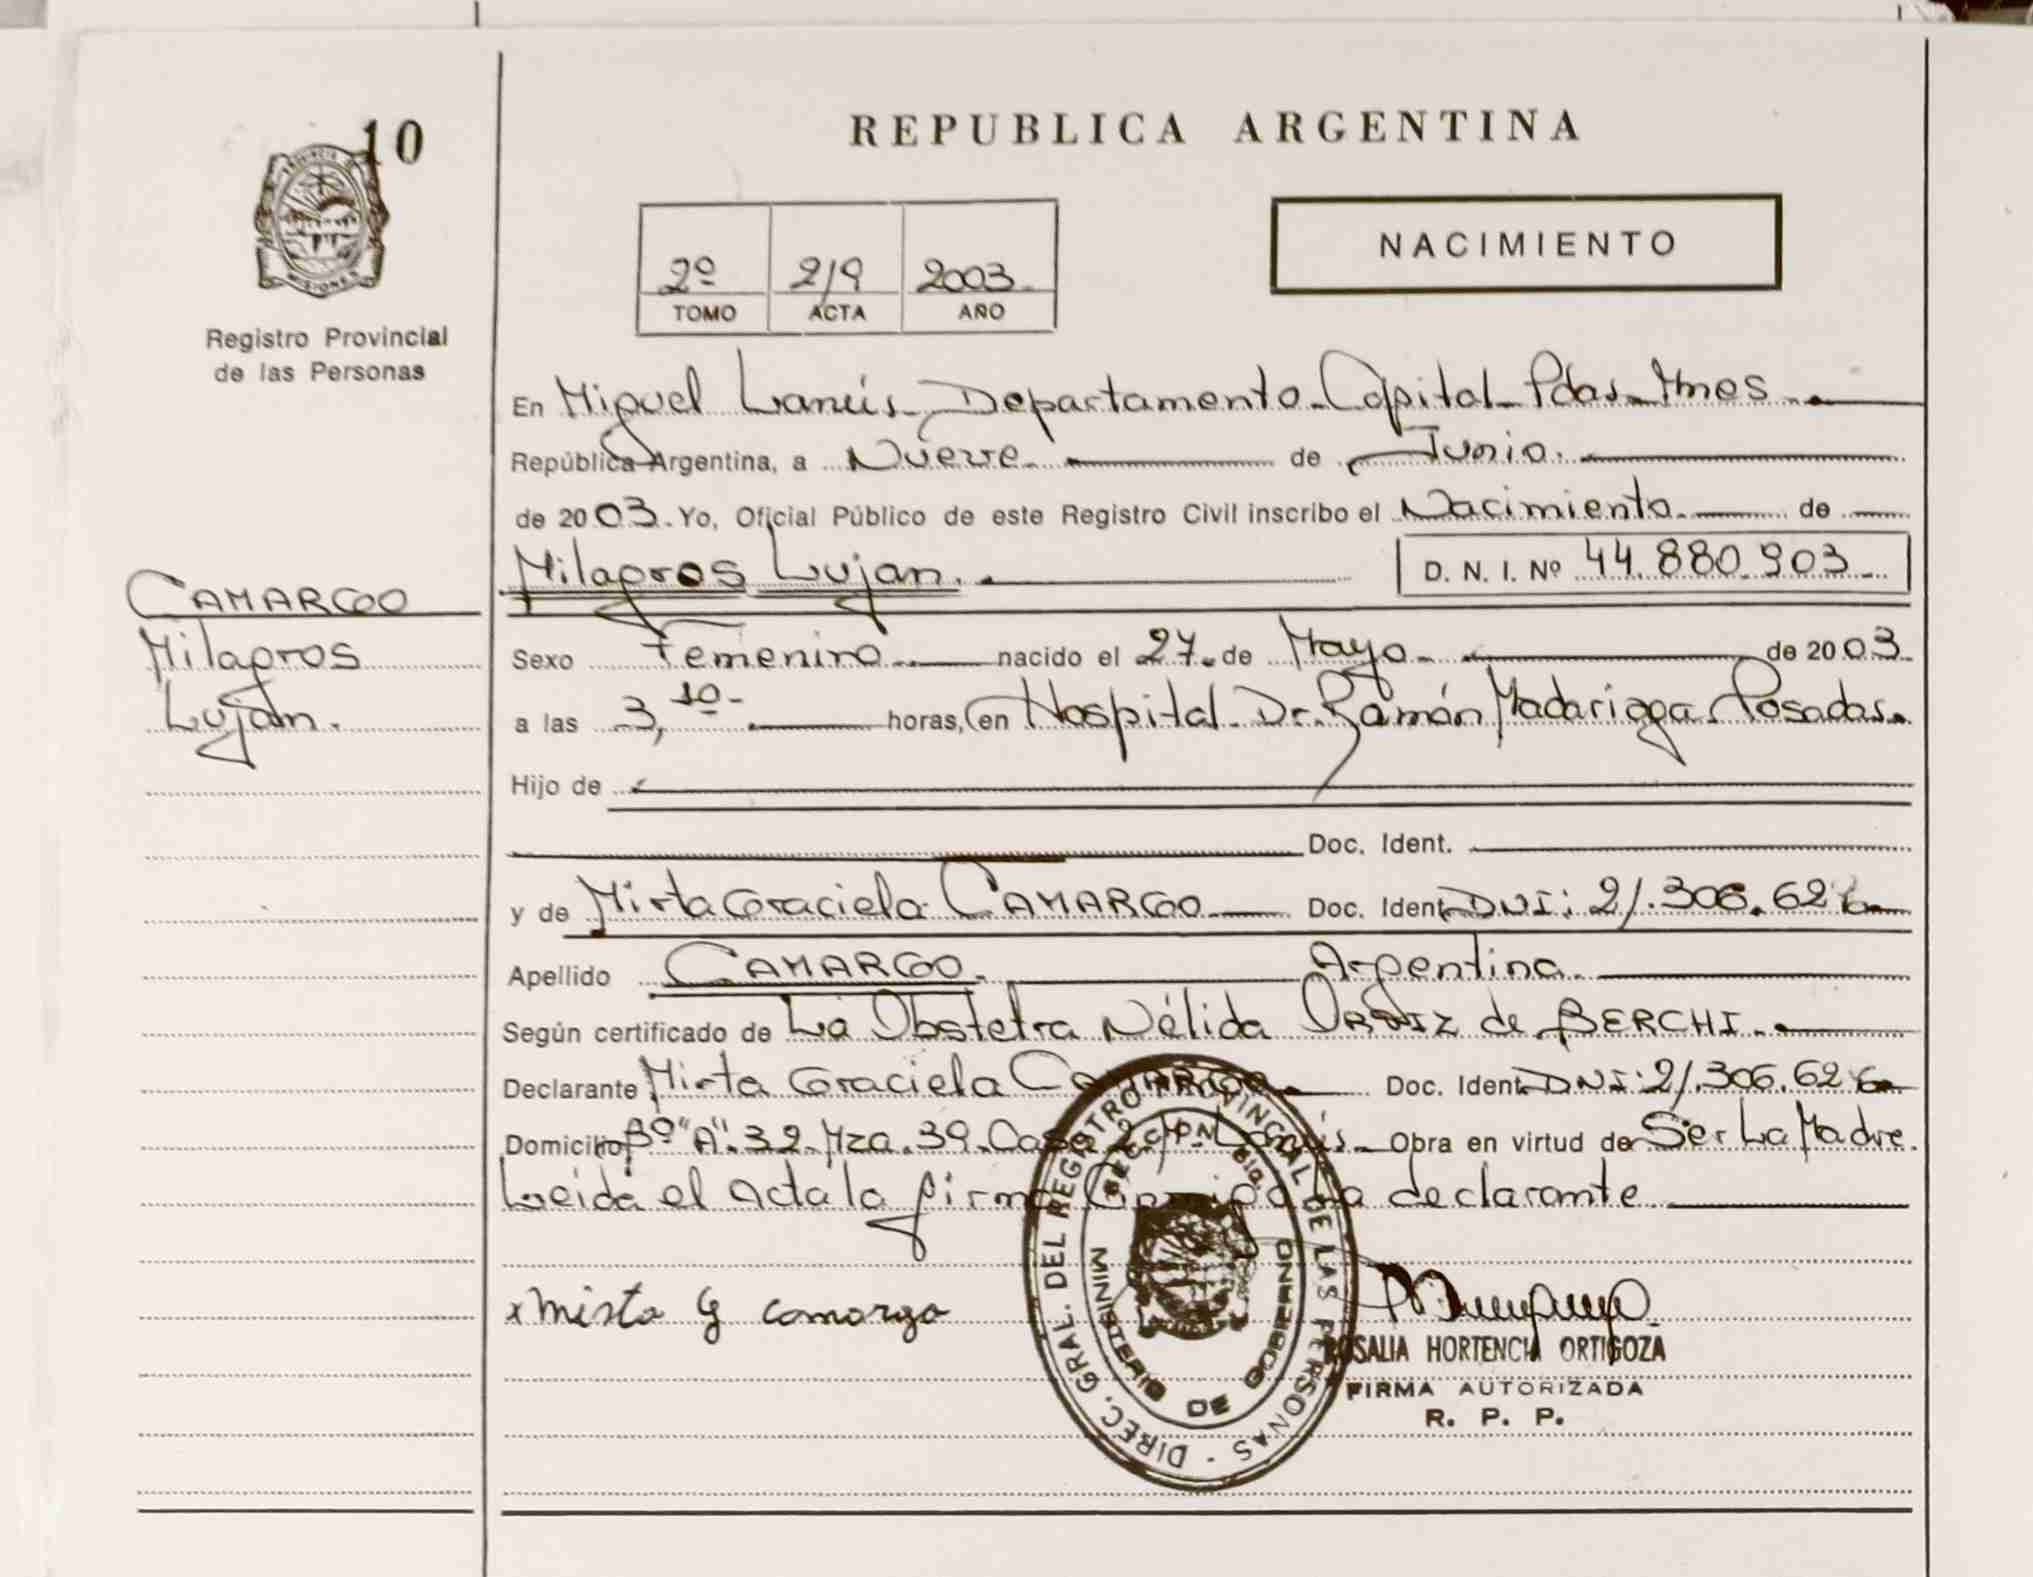 10
PROVINCIA DE
MISIONES
Registro Provincial
de las Personas
REPUBLICA ARGENTINA
NACIMIENTO
2º 219 2003.
TOMO ACTA AÑO
En Miguel Lanús Departamento Capital Pdas Mnes
República Argentina, a Nueve de Junio.
de 2003. Yo, Oficial Público de este Registro Civil inscribo el Nacimiento de
Milagros Lujan. D. N. I. Nº 44.880.903
CAMARGO
Milagros
Luján.
Sexo Femenino nacido el 27. de Mayo de 2003.
a las 3,10 horas, en Hospital Dr. Ramón Madariaga Posadas.
Hijo de
Doc. Ident.
y de Mirta Graciela CAMARGO Doc. Ident. DNI: 21.306.626
Apellido CAMARGO. Argentina
Según certificado de La Obstetra Nélida de BERCHI.
Declarante Mirta Graciela CAMARGO Doc. Ident. DNI: 21.306.626
Domicilio Bº "A". 32 Mza. 39. Casa 2 Lanús Obra en virtud de Ser La Madre.
Leida el acta la firma la declarante
x Mirta G camargo
DIREC. GRAL. DEL REGISTRO PROVINCIAL DE LAS PERSONAS
MINISTERIO DE GOBIERNO
ROSALIA HORTENCIA ORTIGOZA
FIRMA AUTORIZADA
R. P. P.